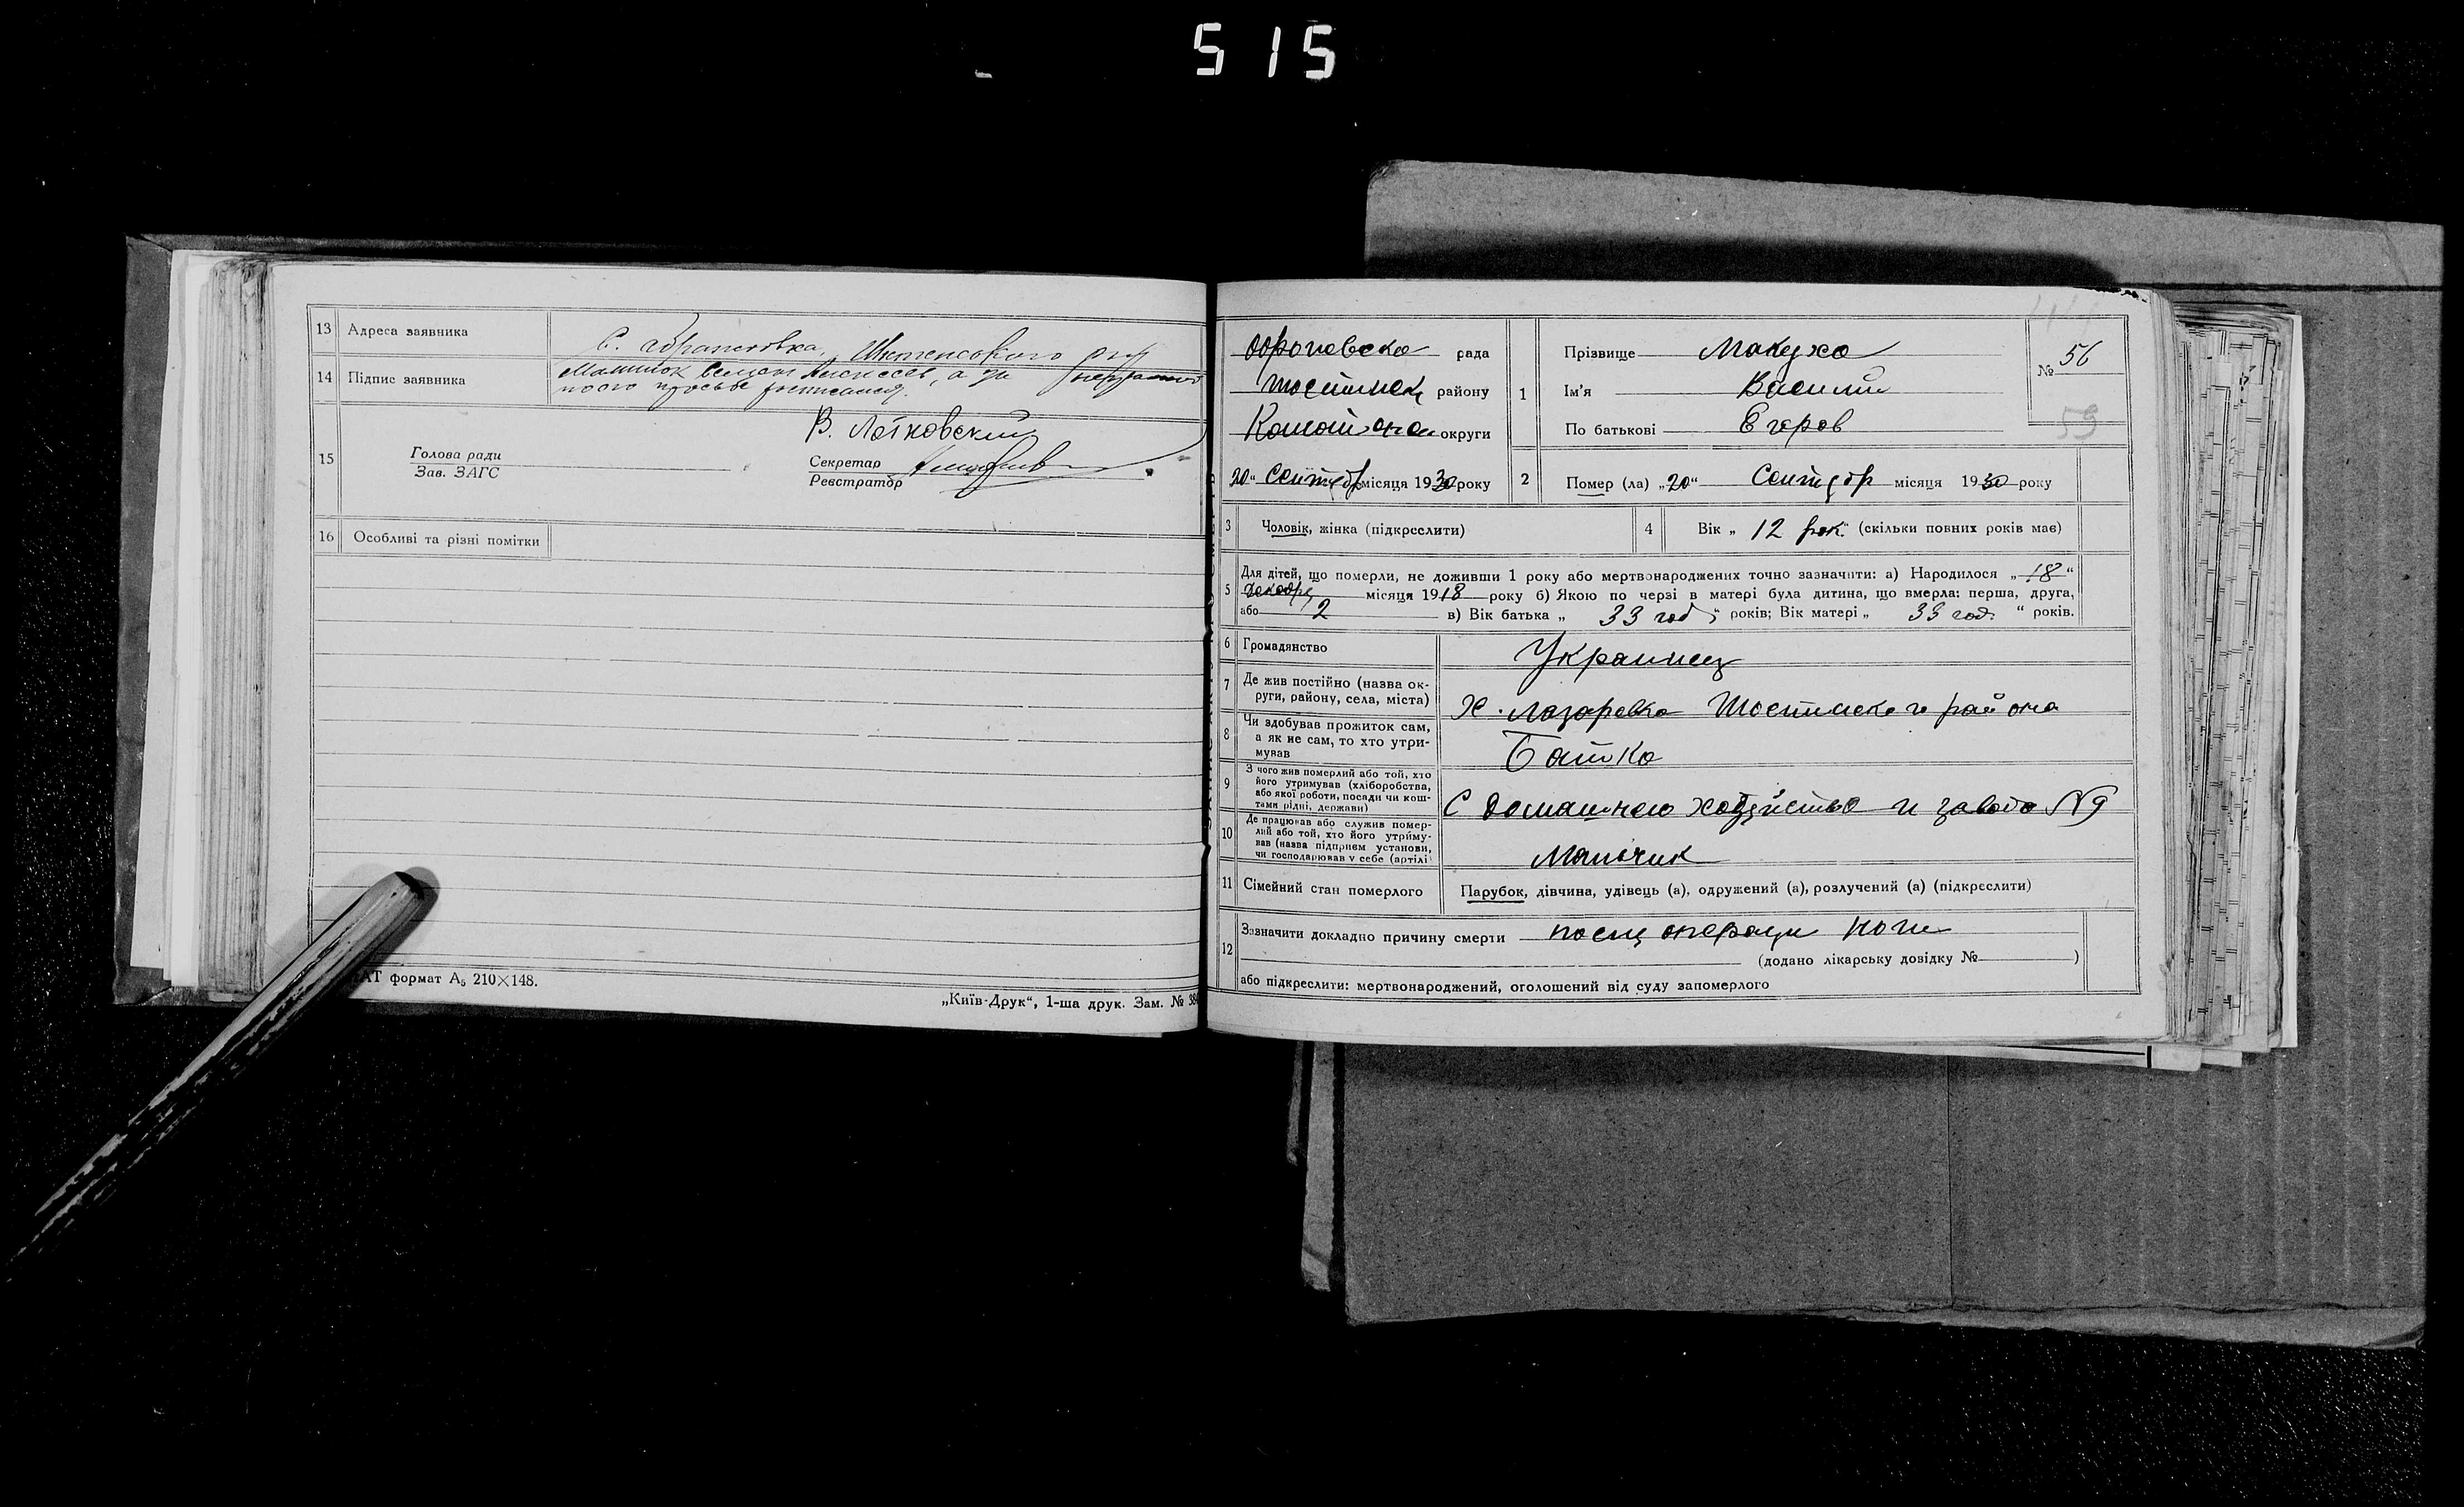 515
13 Адреса заявника
14 Підпис заявника
В. Лотковский
15 Голова ради
Зав. ЗАГС
Секретар
Реєстратор
16 Особливі та різні помітки
АТ формат А₅ 210×148.
„Київ-Друк“, 1-ша друк. Зам. № 38
рада
району
округи
20 “ Сентябр місяця 1930 року
1 Прізвище Макухо
Ім’я Василий
По батькові Егоров
№ 56
59
2 Помер (ла) „20“ Сентябр місяця 1930 року
3 Чоловік, жінка (підкреслити)
4 Вік „ 12 рок.“ (скільки повних років має)
5 Для дітей, що померли, не доживши 1 року або мертвонароджених точно зазначити: а) Народилося „18“
Декабря місяця 1918 року б) Якою по черзі в матері була дитина, що вмерла: перша, друга,
або 2 в) Вік батька „ 33 год “ років; Вік матері „ 33 год. “ років.
6 Громадянство Украинец
7 Де жив постійно (назва округи, району, села, міста) Х. Лазаревка Шостинского района
8 Чи здобував прожиток сам,
а як не сам, то хто утри-
мував Батко
9 З чого жив померлий або той, хто
його утримував (хліборобства,
або якої роботи, посади чи кош-
тами рідні, держави) С Домашнего хозяйства и завода №9
10 Де працював або служив помер-
лий або той, хто його утриму-
вав (назва підприєм установи,
чи господарював у себе (артілі) Мальчик
11 Сімейний стан померлого Парубок, дівчина, удівець (а), одружений (а), розлучений (а) (підкреслити)
12 Зазначити докладно причину смерти после операции ноги
(додано лікарську довідку № )
або підкреслити: мертвонароджений, оголошений від суду запомерлого